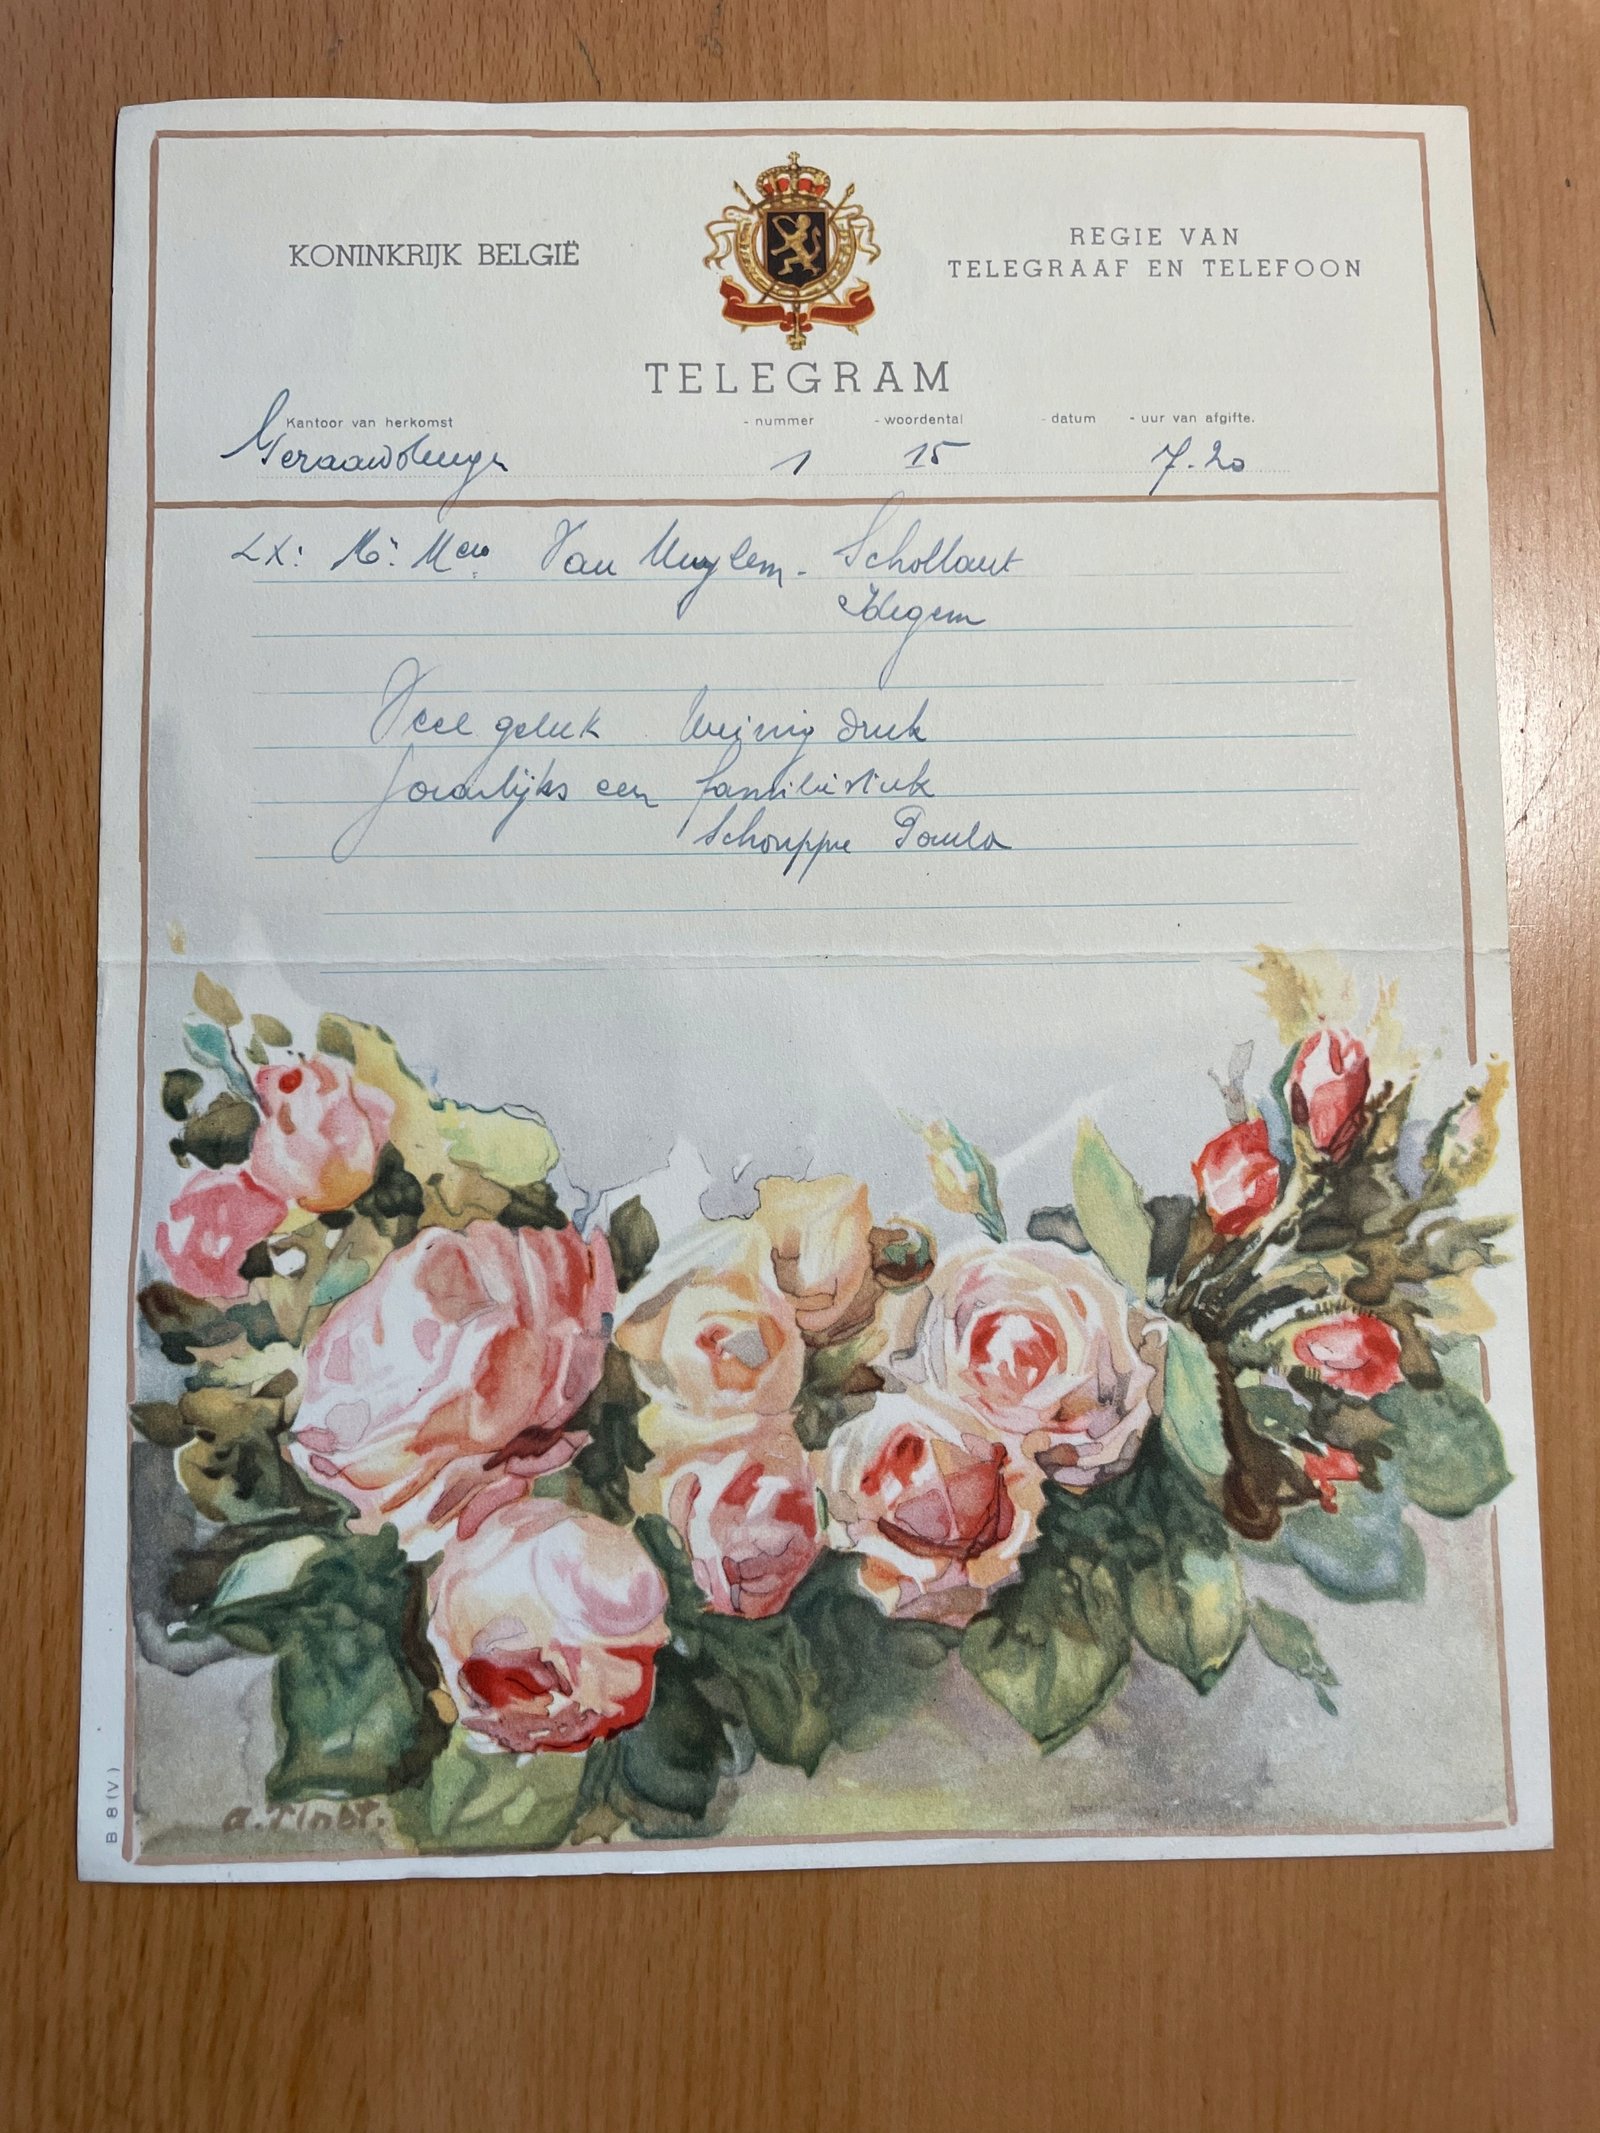 KONINKRIJK BELGIË
REGIE VAN
TELEGRAAF EN TELEFOON
TELEGRAM
Kantoor van herkomst - nummer - woordental - datum - uur van afgifte.
1 15 7.20
LX: Mr Mev Van Muylem - Schollaert
Idegem
Veel geluk Weinig druk
Jaarlijks een familiestuk
Schouppe Paula
B 8 (V)